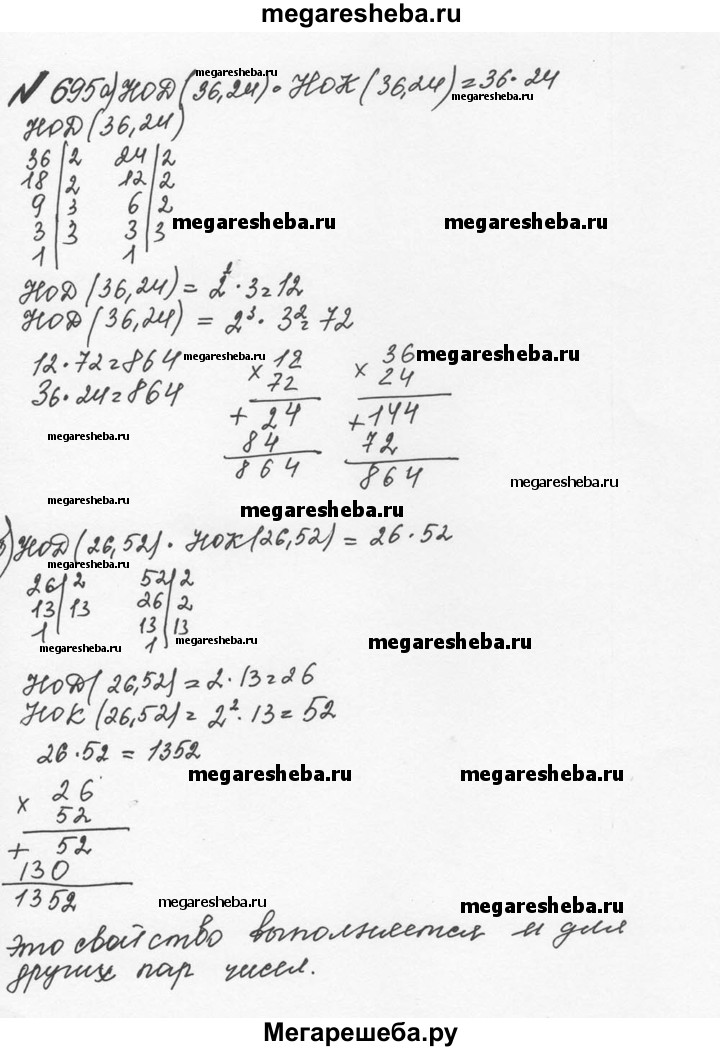 megaresheba.ru
megaresheba.ru
№ 695 а) НОД (36,24) · НОК (36,24) = 36 · 24
megaresheba.ru
НОД (36,24)
36 | 2 24 | 2
18 | 2 12 | 2
9 | 3 6 | 2
megaresheba.ru megaresheba.ru
3 | 3 3 | 3
1 | 1 |
НОД (36,24) = 2² · 3 = 12
НОД (36,24) = 2³ · 3² = 72
12 · 72 = 864 megaresheba.ru × 12 × 36 megaresheba.ru
36 · 24 = 864 72 24
+ 24 + 144
megaresheba.ru 84 72
864 864
megaresheba.ru
megaresheba.ru
megaresheba.ru
б) НОД (26,52) · НОК (26,52) = 26 · 52
megaresheba.ru
26 | 2 52 | 2
13 | 13 26 | 2
1 | 13 | 13
megaresheba.ru 1 | megaresheba.ru megaresheba.ru
НОД (26,52) = 2 · 13 = 26
НОК (26,52) = 2² · 13 = 52
26 · 52 = 1352
megaresheba.ru megaresheba.ru
× 26
52
+ 52
130
1352
megaresheba.ru megaresheba.ru
Это свойство выполняется и для
других пар чисел.
Мегарешеба.ру